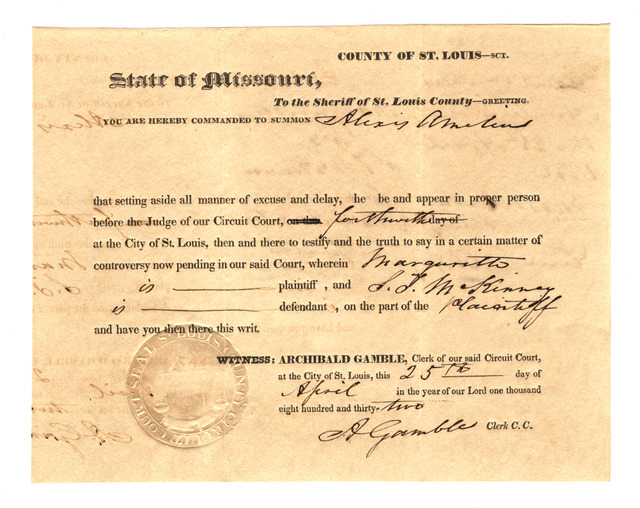 COUNTY OF ST. LOUIS—SCT.
State of Missouri,
To the Sheriff of St. Louis County—GREETING.
YOU ARE HEREBY COMMANDED TO SUMMON Alexis Amelin
that setting aside all manner of excuse and delay, he be and appear in proper person
before the Judge of our Circuit Court, on the forthwith day of
at the City of St. Louis, then and there to testify and the truth to say in a certain matter of
controversy now pending in our said Court, wherein Marguritte
is plaintiff , and S. S. McKinney
is defendant , on the part of the plaintiff
and have you then there this writ.
WITNESS: ARCHIBALD GAMBLE, Clerk of our said Circuit Court,
at the City of St. Louis, this 25th day of
April in the year of our Lord one thousand
eight hundred and thirty-two
A Gamble Clerk C. C.
SEAL ST. LOUIS COUNTY CIRCUIT COURT